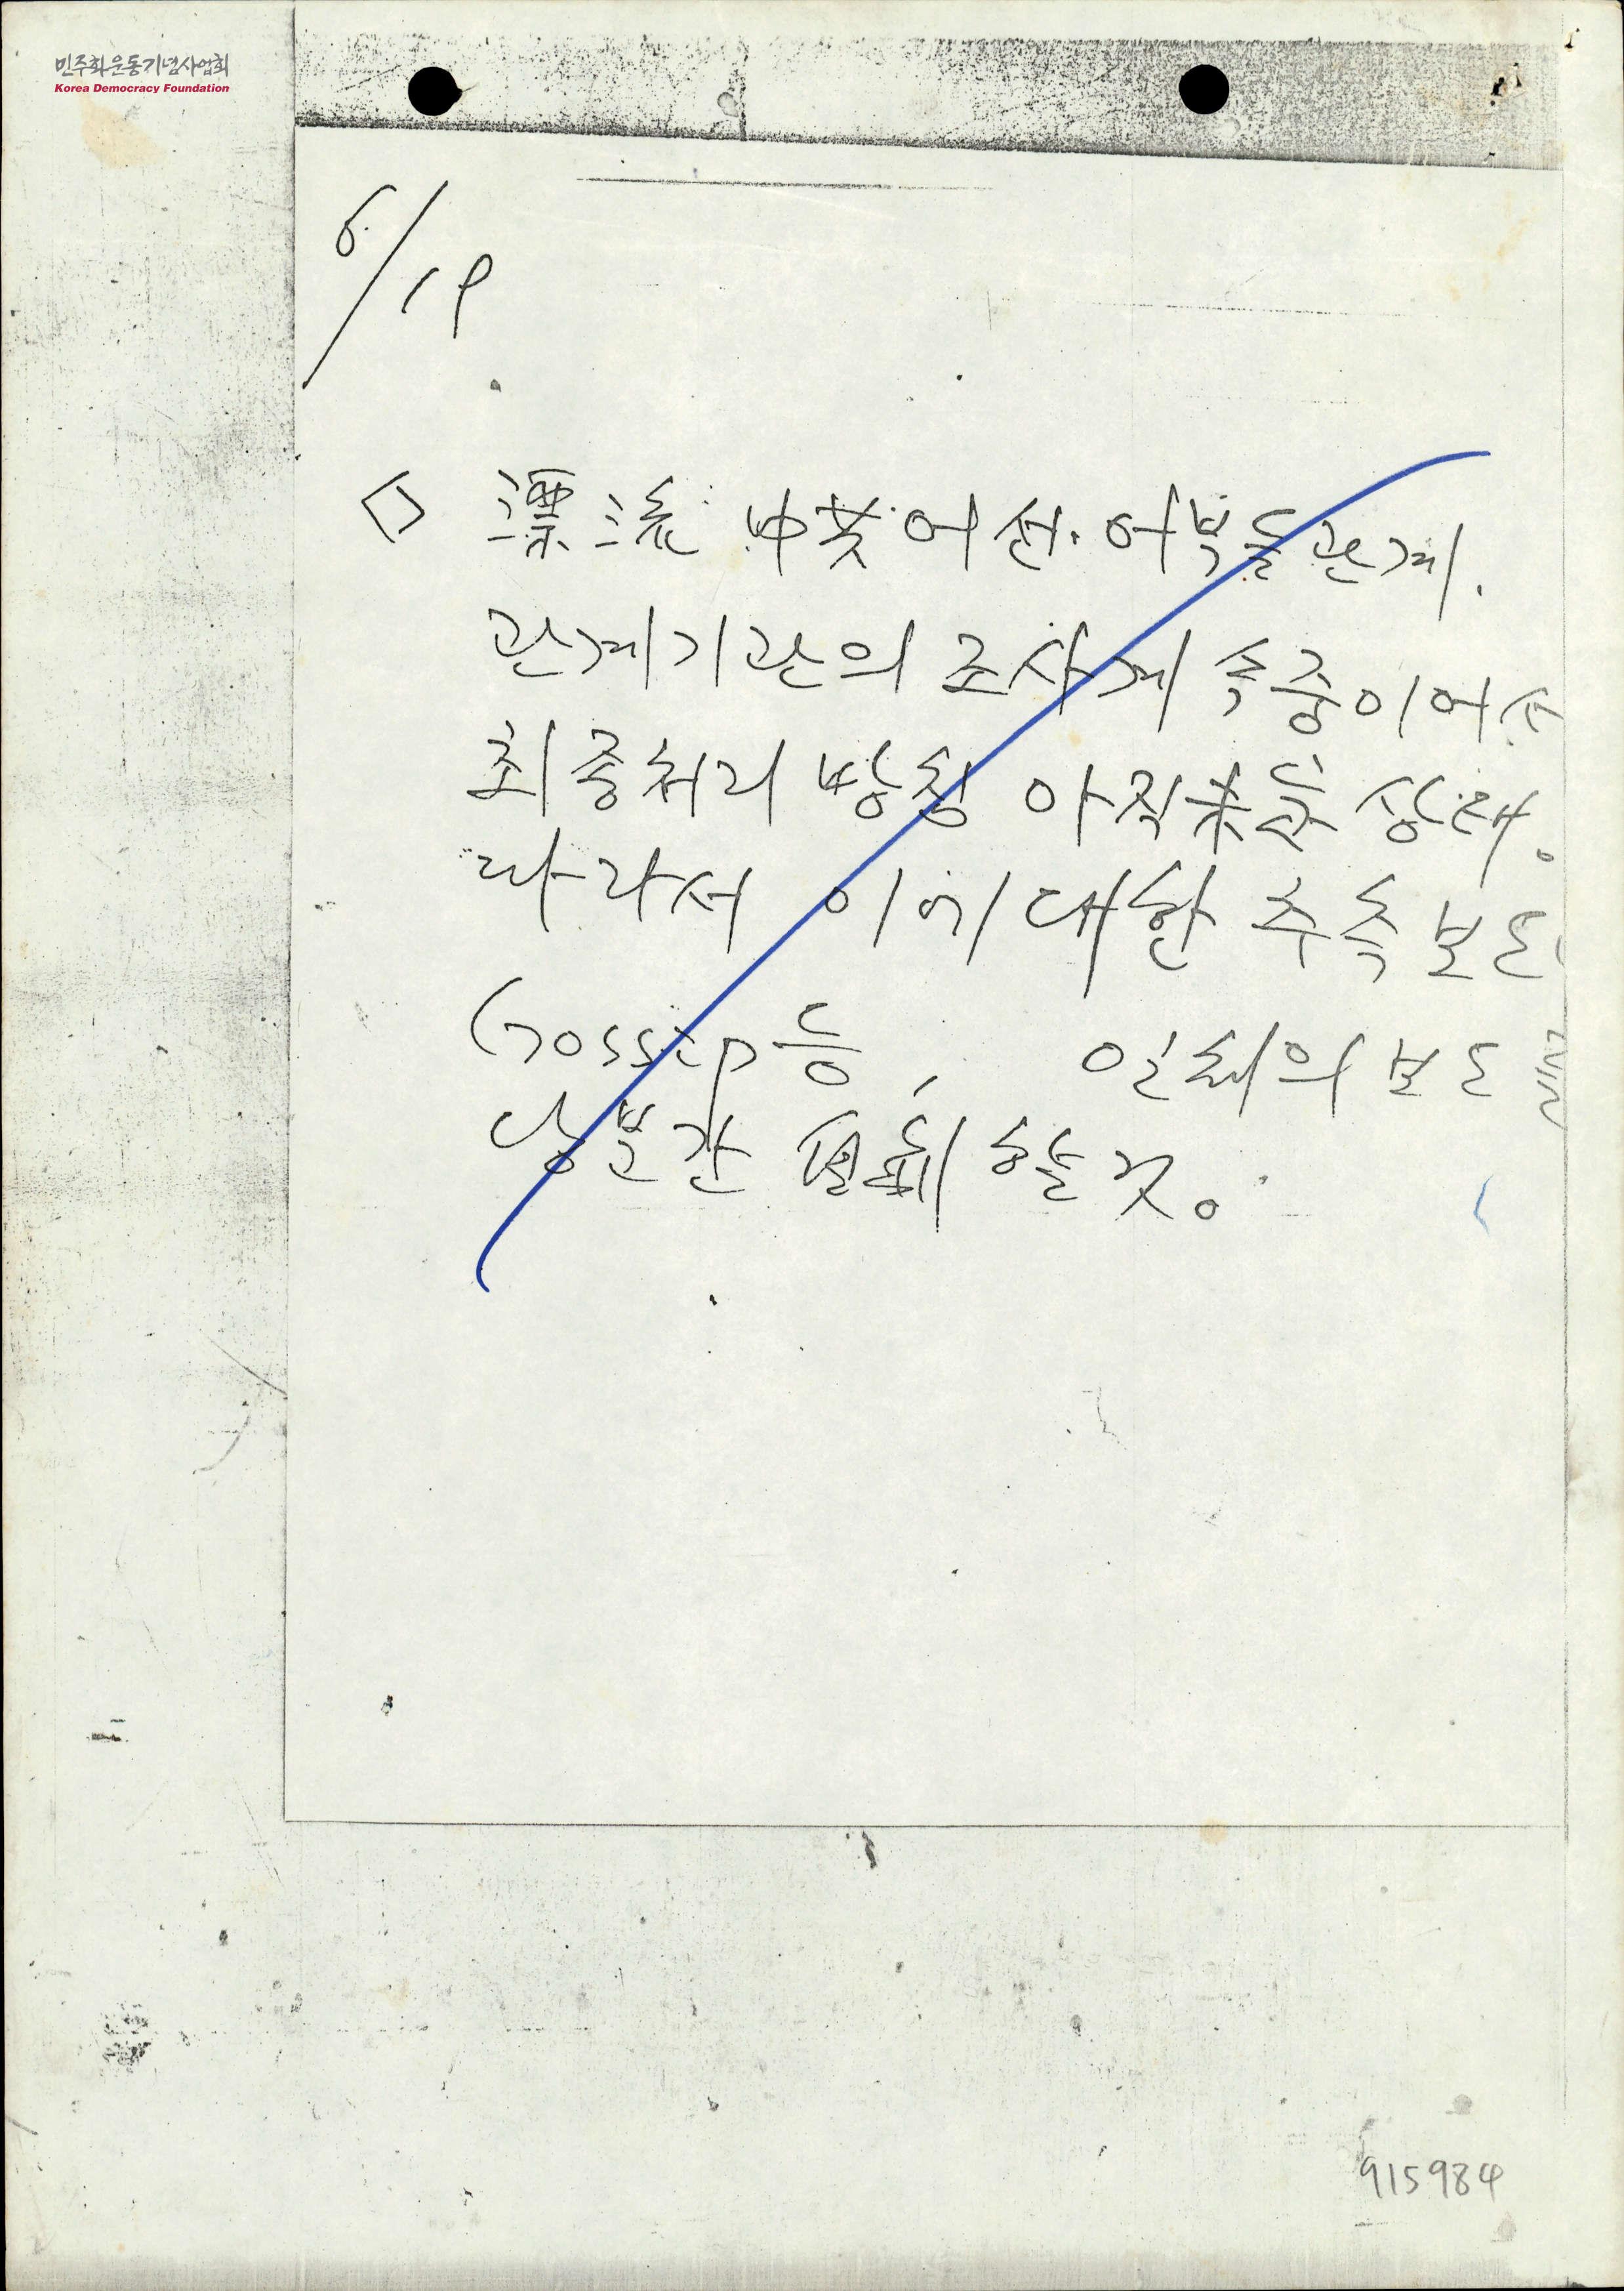 민주화운동기념사업회
Korea Democracy Foundation
6/19
◇ 漂流 中共어선. 어부들 관계.
관계기관의 조사 계속중이어서
최종처리 방침 아직 未定 상태。
따라서 이에 대한 추측 보도
Gossip등, 일체의 보도
당분간 보류하는 것。
915984